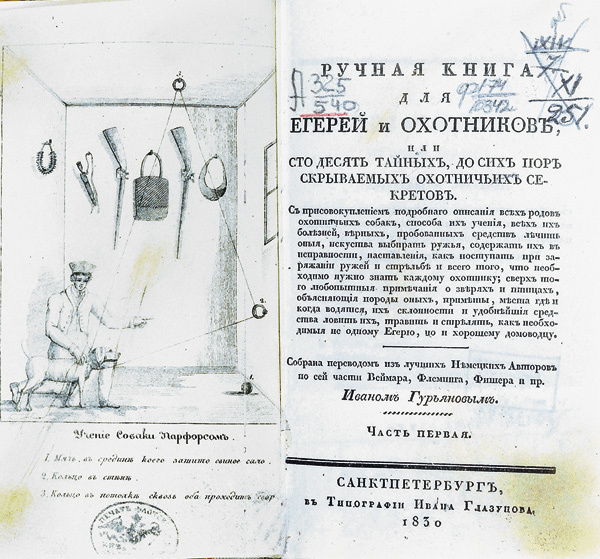 3.
2.
1.
Ученіе Собаки Парфорсомъ.
1. Мячъ, въ срединѣ коего зашито свиное сало.
2. Кольцо въ стѣнѣ.
3. Кольцо въ потолкѣ сквозь оба проходитъ
ПЕЧАТЬ
Л 325
540
ф 174
10342
XI
251.
РУЧНАЯ КНИГА
ДЛЯ
ЕГЕРЕЙ и ОХОТНИКОВЪ,
или
СТО ДЕСЯТЬ ТАЙНЫХЪ, ДО СИХЪ ПОРЪ
СКРЫВАЕМЫХЪ ОХОТНИЧЬИХЪ СЕ-
КРЕТОВЪ.
Съ присовокупленіемъ подробнаго описанія всѣхъ родовъ
охотничьихъ собакъ, способа ихъ ученія, всѣхъ ихъ
болѣзней, вѣрныхъ, пробованныхъ средствъ лѣчить
оныя, искуства выбирать ружья, содержать ихъ въ
исправности, наставленія, какъ поступать при за-
ряжаніи ружей и стрѣльбѣ и всего того, что необ-
ходимо нужно знать каждому охотнику; сверхъ то-
го любопытныя примѣчанія о звѣряхъ и птицахъ,
объясняющія породы оныхъ, примѣты, мѣста гдѣ и
когда водятся, ихъ склонности и удобнѣйшія сред-
ства ловить ихъ, травить и стрѣлять, какъ необхо-
димыя не одному Егерю, но и хорошему домоводцу.
Собрана переводомъ изъ лучшихъ Нѣмецкихъ Авторовъ
по сей части Веймара, Флеминга, Фишера и пр.
Иваномъ Гурьяновымъ.
Часть первая.
САНКТПЕТЕРБУРГЪ,
въ Типографіи Ивана Глазунова,
1830